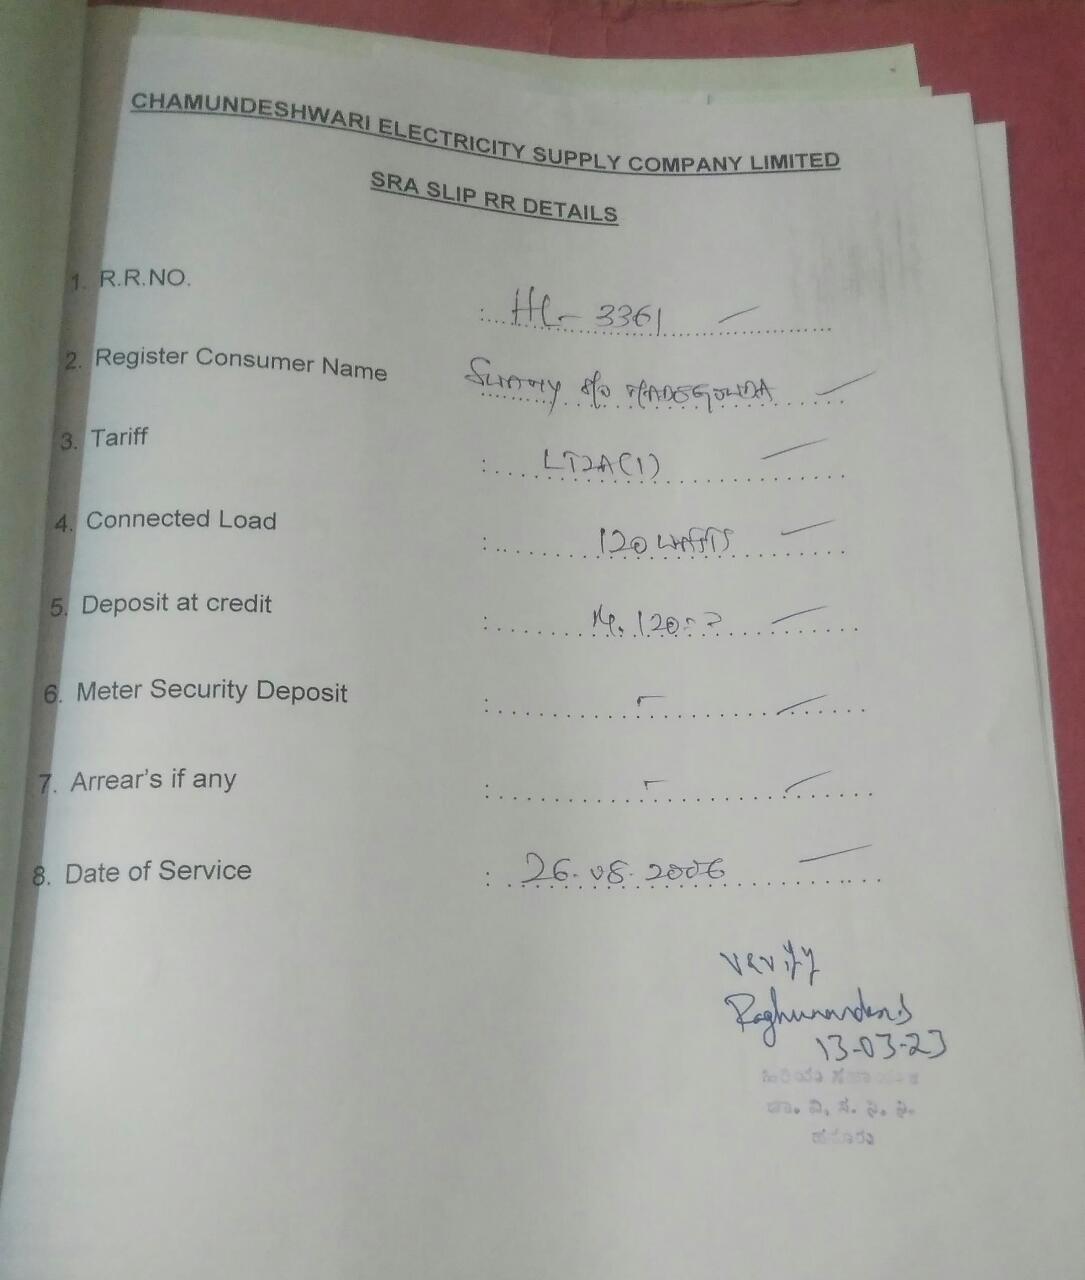 CHAMUNDESHWARI ELECTRICITY SUPPLY COMPANY LIMITED
SRA SLIP RR DETAILS
1. R.R.NO. : HL- 3361
2. Register Consumer Name S/o MADEGOWDA
3. Tariff : LT2A(1)
4. Connected Load : 120 WATTS
5. Deposit at credit : 120
6. Meter Security Deposit : -
7. Arrear's if any : -
8. Date of Service : 26.08.2006
verify
Raghunandan.S
13-03-23
ಹಿರಿಯ ಸಹಾಯಕ
ಹನೂರು